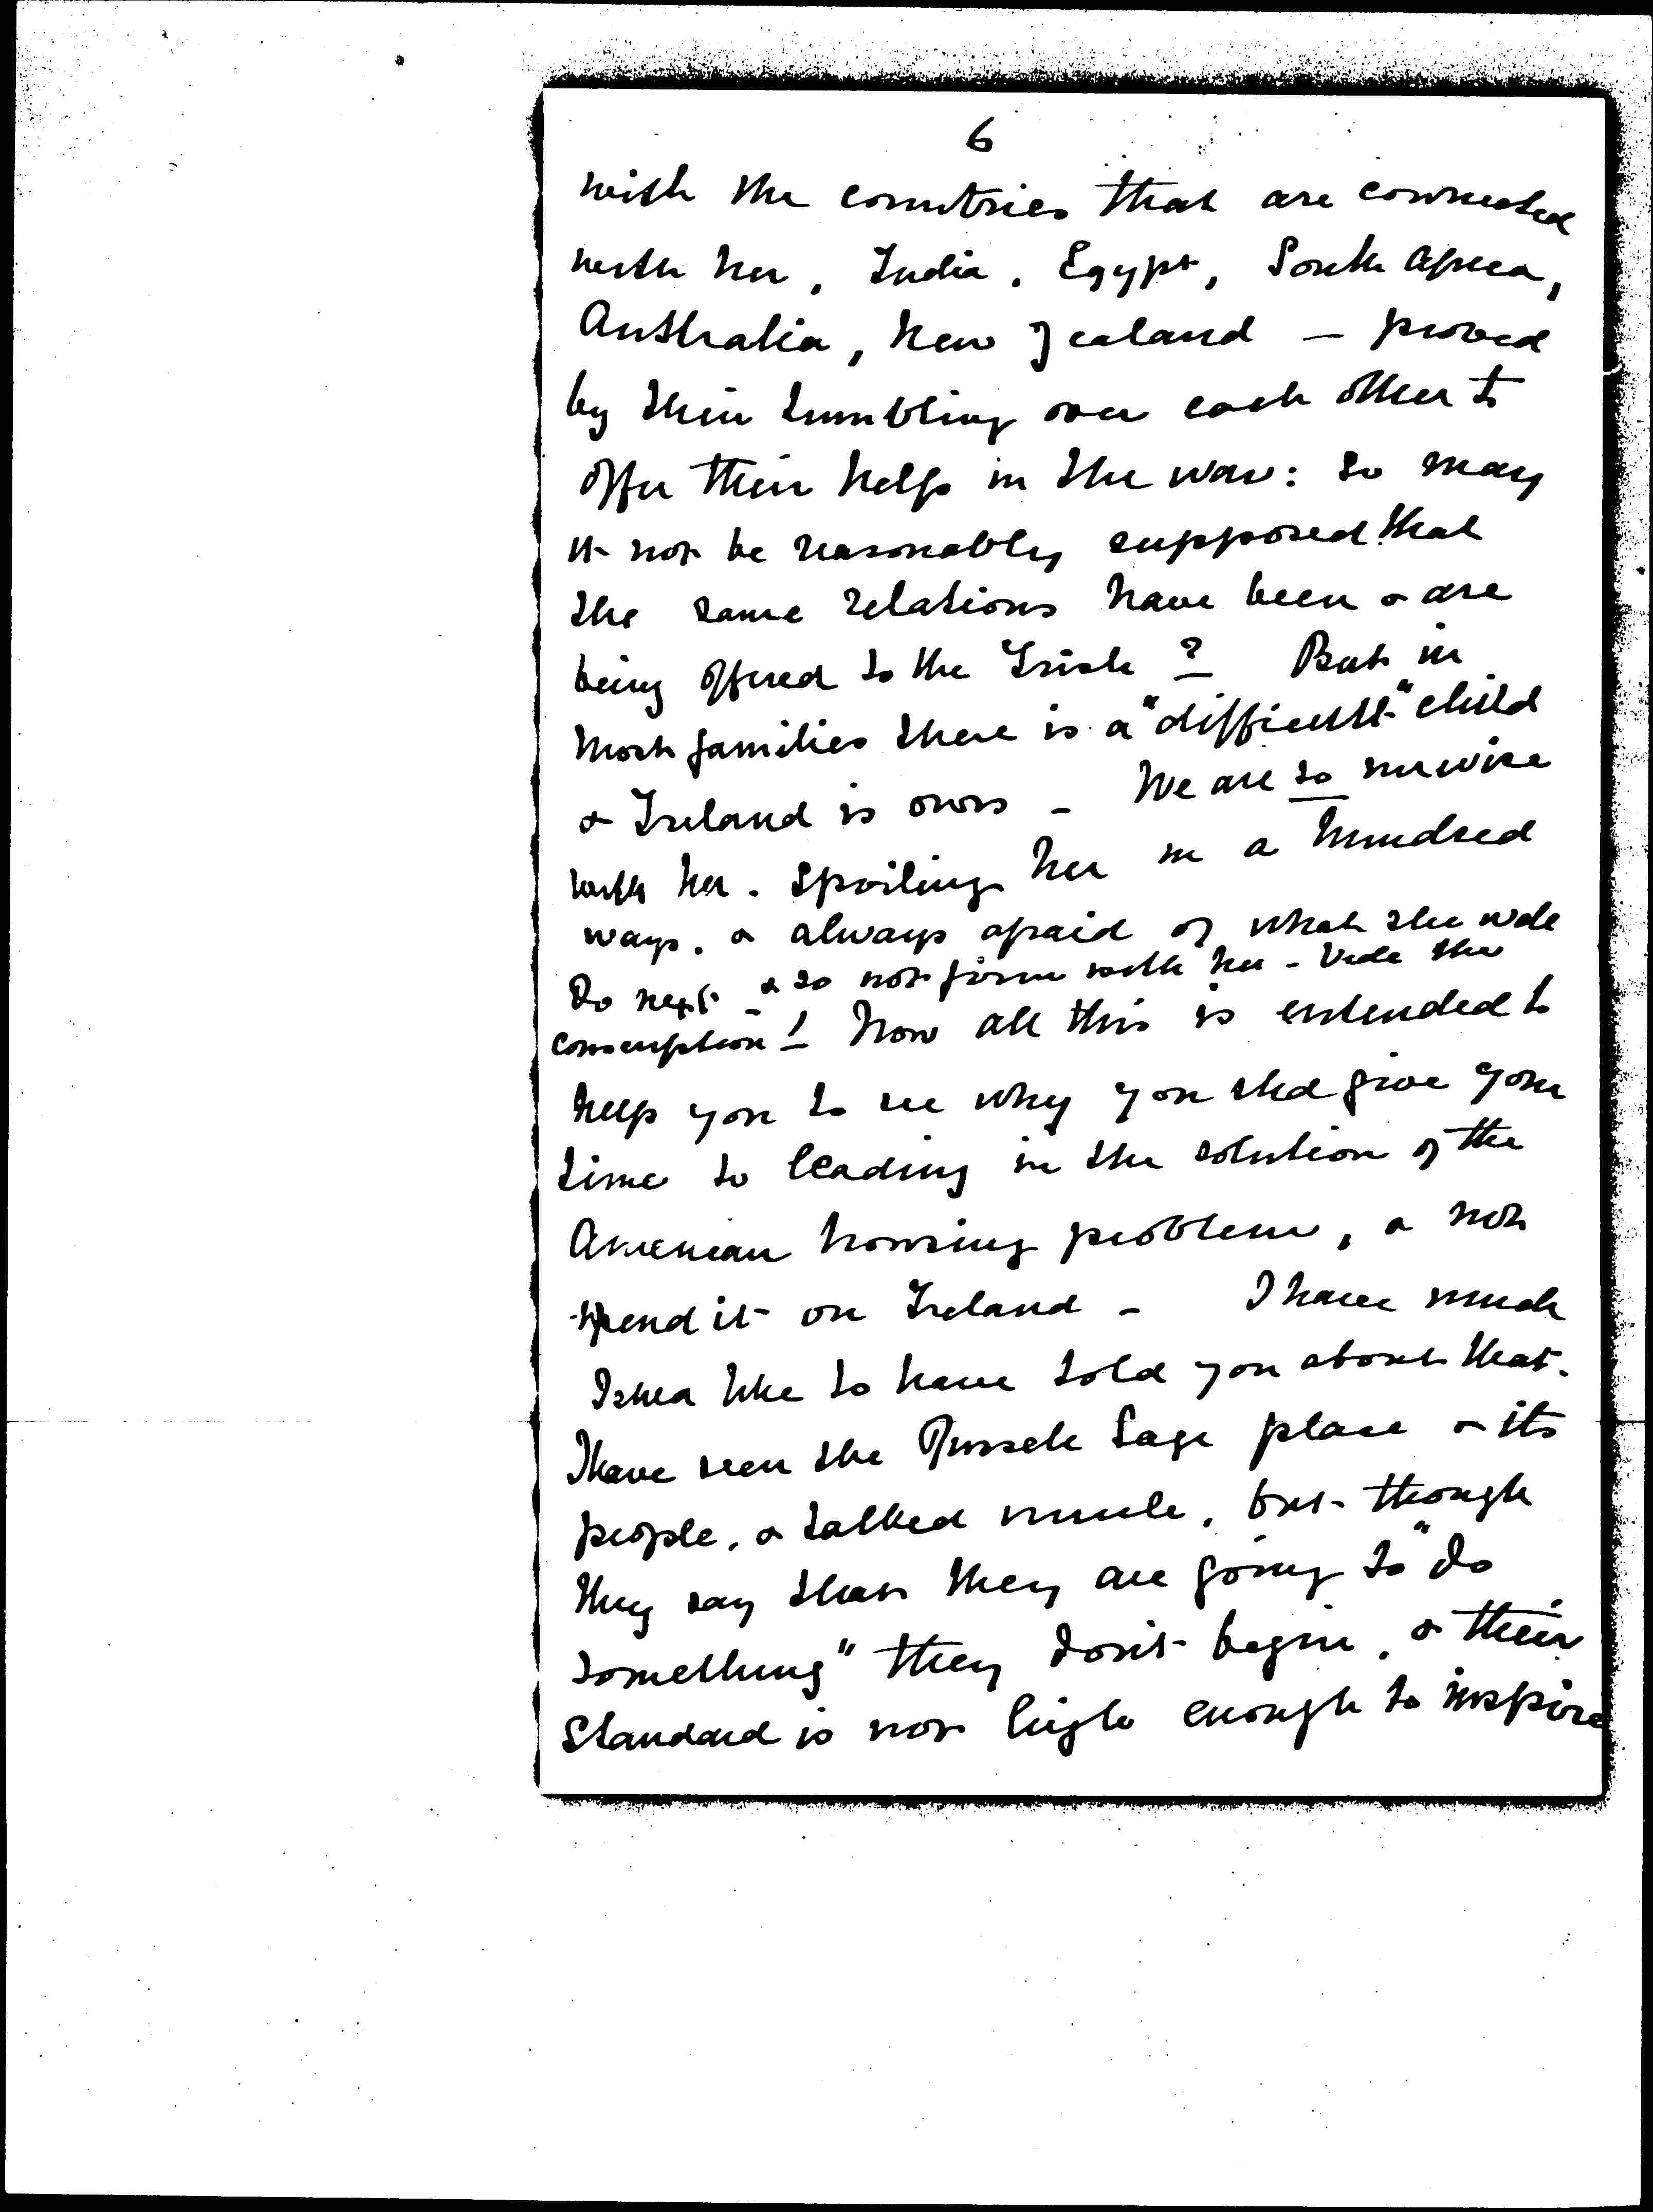 6
with the countries that are connected
with her, India, Egypt, South Africa,
Australia, New Zealand — proved
by their tumbling over each other to
offer their help in the war: so may
it not be reasonably supposed that
the same relations have been & are
being offered to the Irish? But in
most families there is a "difficult" child
& Ireland is ours - We are so unwise
with her. Spoiling her in a hundred
ways, & always afraid of what she wdl
do next - & so not firm with her - Vide the
conscription! Now all this is entended to
help you to see why you shd give your
time to leading in the solution of the
American housing problem, & not
spend it on Ireland - I have much
I shd like to have told you about that.
I have seen the Russell Sage place & its
people, & talked much, but though
they say that they are going to "do
something" they don't begin, & their
standard is not high enough to inspire